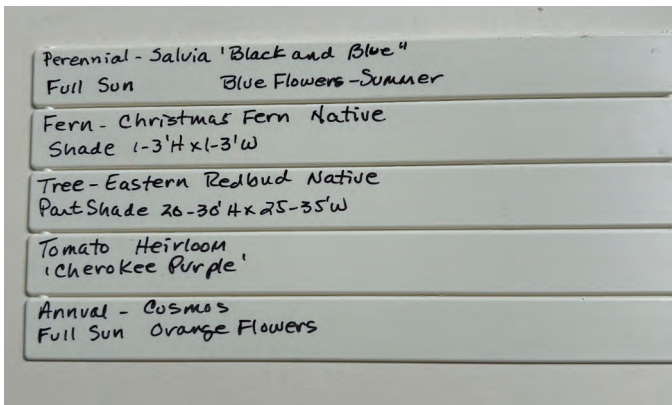 Perennial - Salvia 'Black and Blue"
Full Sun Blue Flowers - Summer
Fern - Christmas Fern Native
Shade 1-3'H x 1-3'W
Tree - Eastern Redbud Native
Part Shade 20-30'H x 25-35'W
Tomato Heirloom
'Cherokee Purple'
Annual - Cosmos
Full Sun Orange Flowers